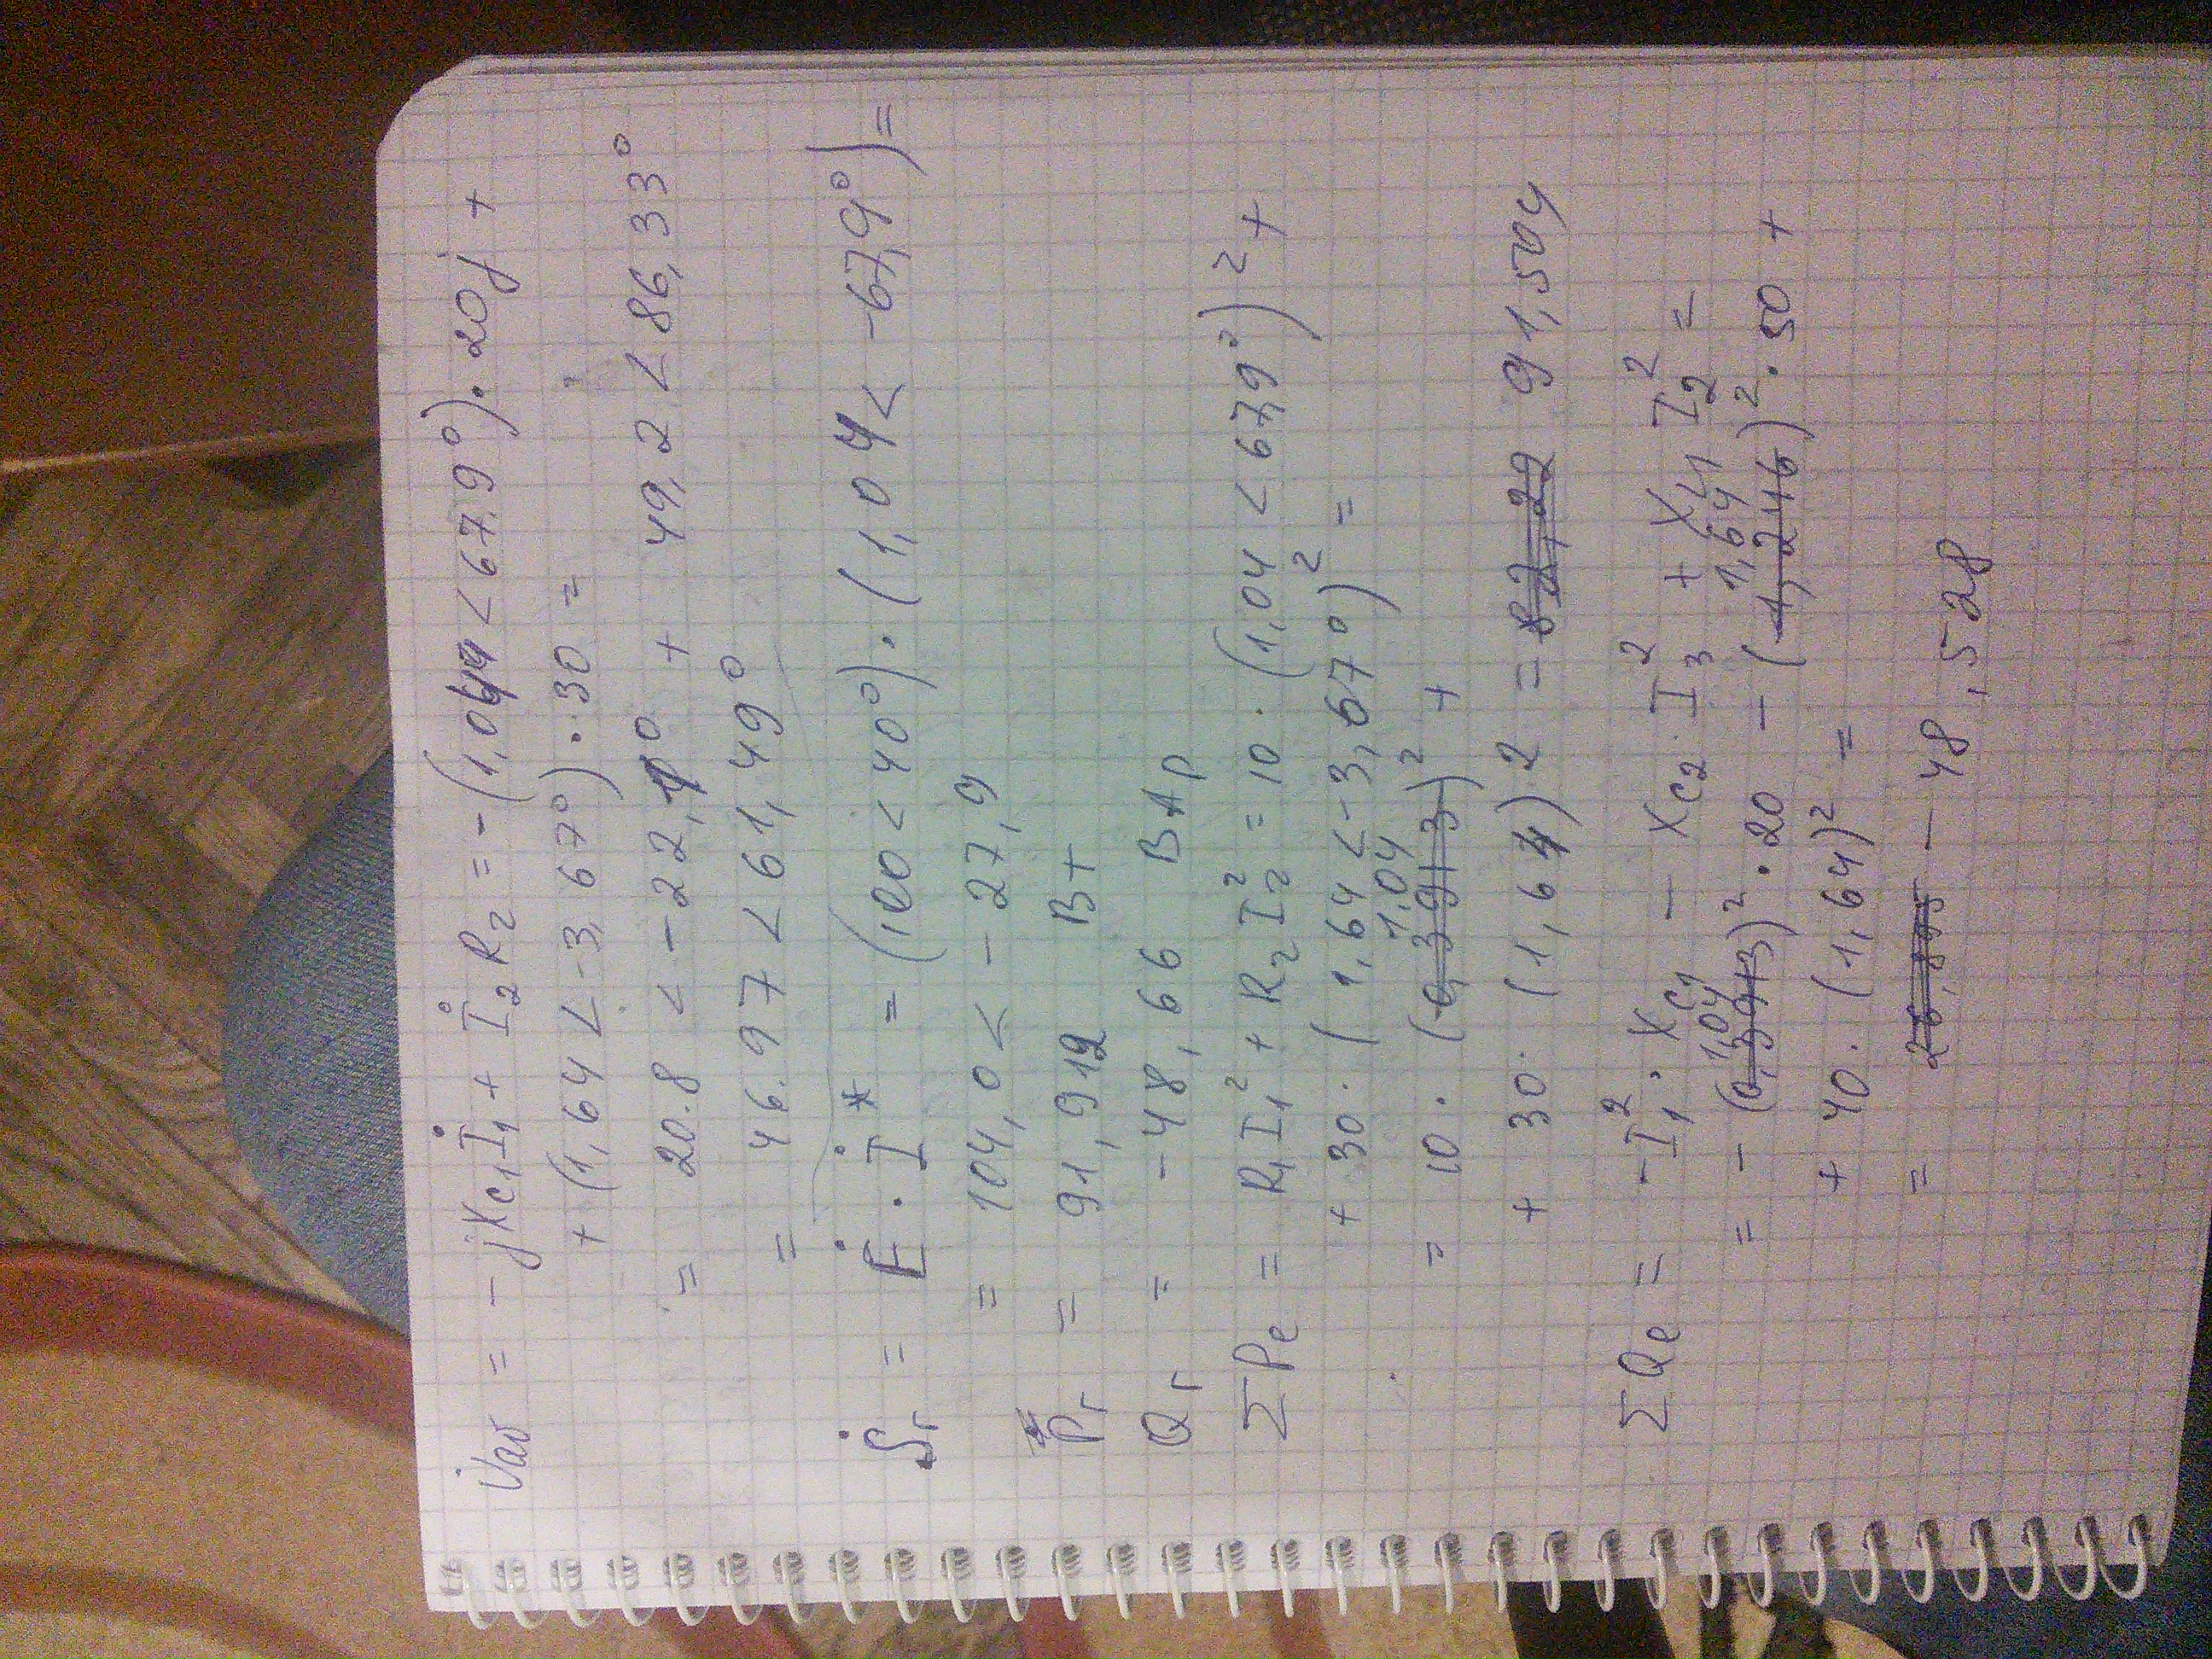 U̇ав = - jXc1İ1 + İ2R2 = -(1,04 < 67,9°)·20j +
+ (1,64 < -3,67°)·30 =
= 20.8 < -22,1° + 49,2 < 86,33°
= 46.97 < 61,49°
Ṡг = Ė · İ* = (100 < 40°)·(1,04 < -67,9°) =
= 104,0 < -27,9
Pг = 91,912 Вт
Qг = -48,66 ВАр
ΣPe = R1I1² + R2I2² = 10·(1,04 < 67,9°)² +
+ 30·(1,64 < -3,67°)² =
= 10·(0,3913 1,04)² +
+ 30·(1,64)2 = 82,22 91,504
ΣQe = -I1²·Xc1 - Xc2·I3² + XL1 I2² =
= -(0,3913 1,04)²·20 - (1,2416 1,64)²·50 +
+ 40·(1,64)² =
= 26,895 - 48,528